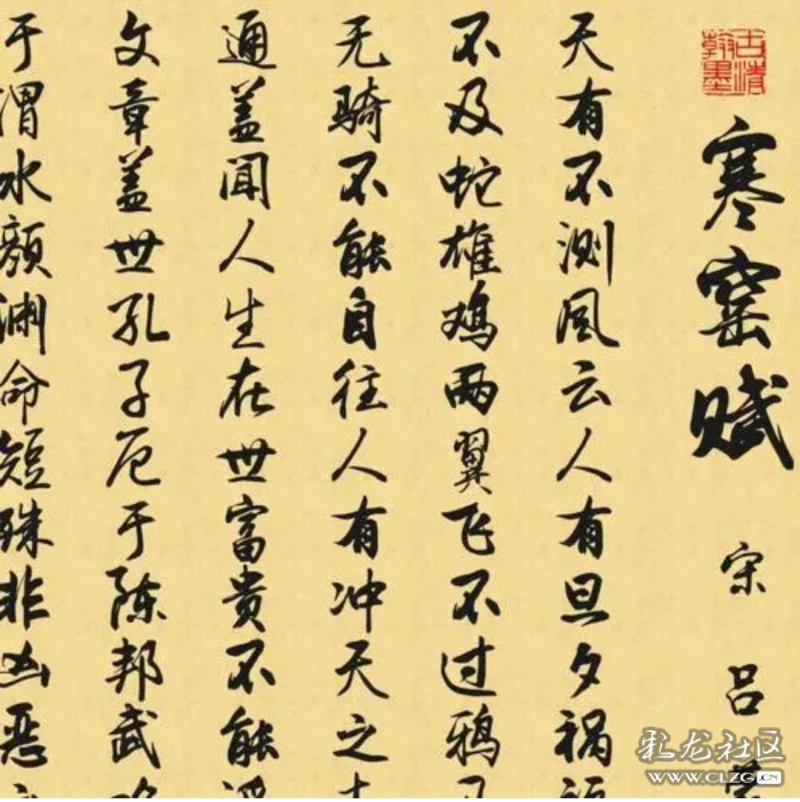 古清翰墨
寒窑赋
宋 吕
天有不测风云人有旦夕祸
不及蛇雄鸡两翼飞不过鸦
无骑不能自往人有冲天之
通盖闻人生在世富贵不能
文章盖世孔子厄于陈邦武
于渭水颜渊命短殊非凶恶
彩龙社区
WWW.CLZG.CN